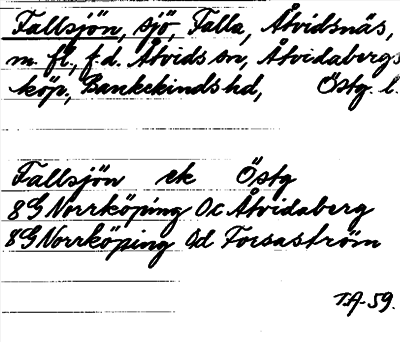 Fallsjön, sjö, Falla, Åtvidsnäs,
m. fl., f.d. Åtvids sn, Åtvidabergs
köp, Bankekinds hd, Östg. l.
Fallsjön ek Östg
8G Norrköping 0c Åtvidaberg
8G Norrköping 0d Forsaström
T.A-59.